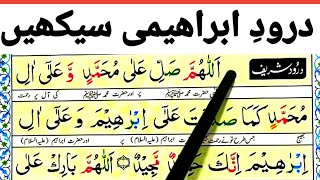 درودِ ابراهیمی سیکھیں
درود شریف
اَللّٰهُمَّ صَلِّ عَلٰى مُحَمَّدٍ وَّ عَلٰٓى اٰلِ
مُحَمَّدٍ كَمَا صَلَّيْتَ عَلٰٓى اِبْرٰهِيْمَ وَ عَلٰٓى اٰلِ
اِبْرٰهِيْمَ اِنَّكَ حَمِيْدٌ مَّجِيْدٌ اَللّٰهُمَّ بَارِكْ عَلٰى